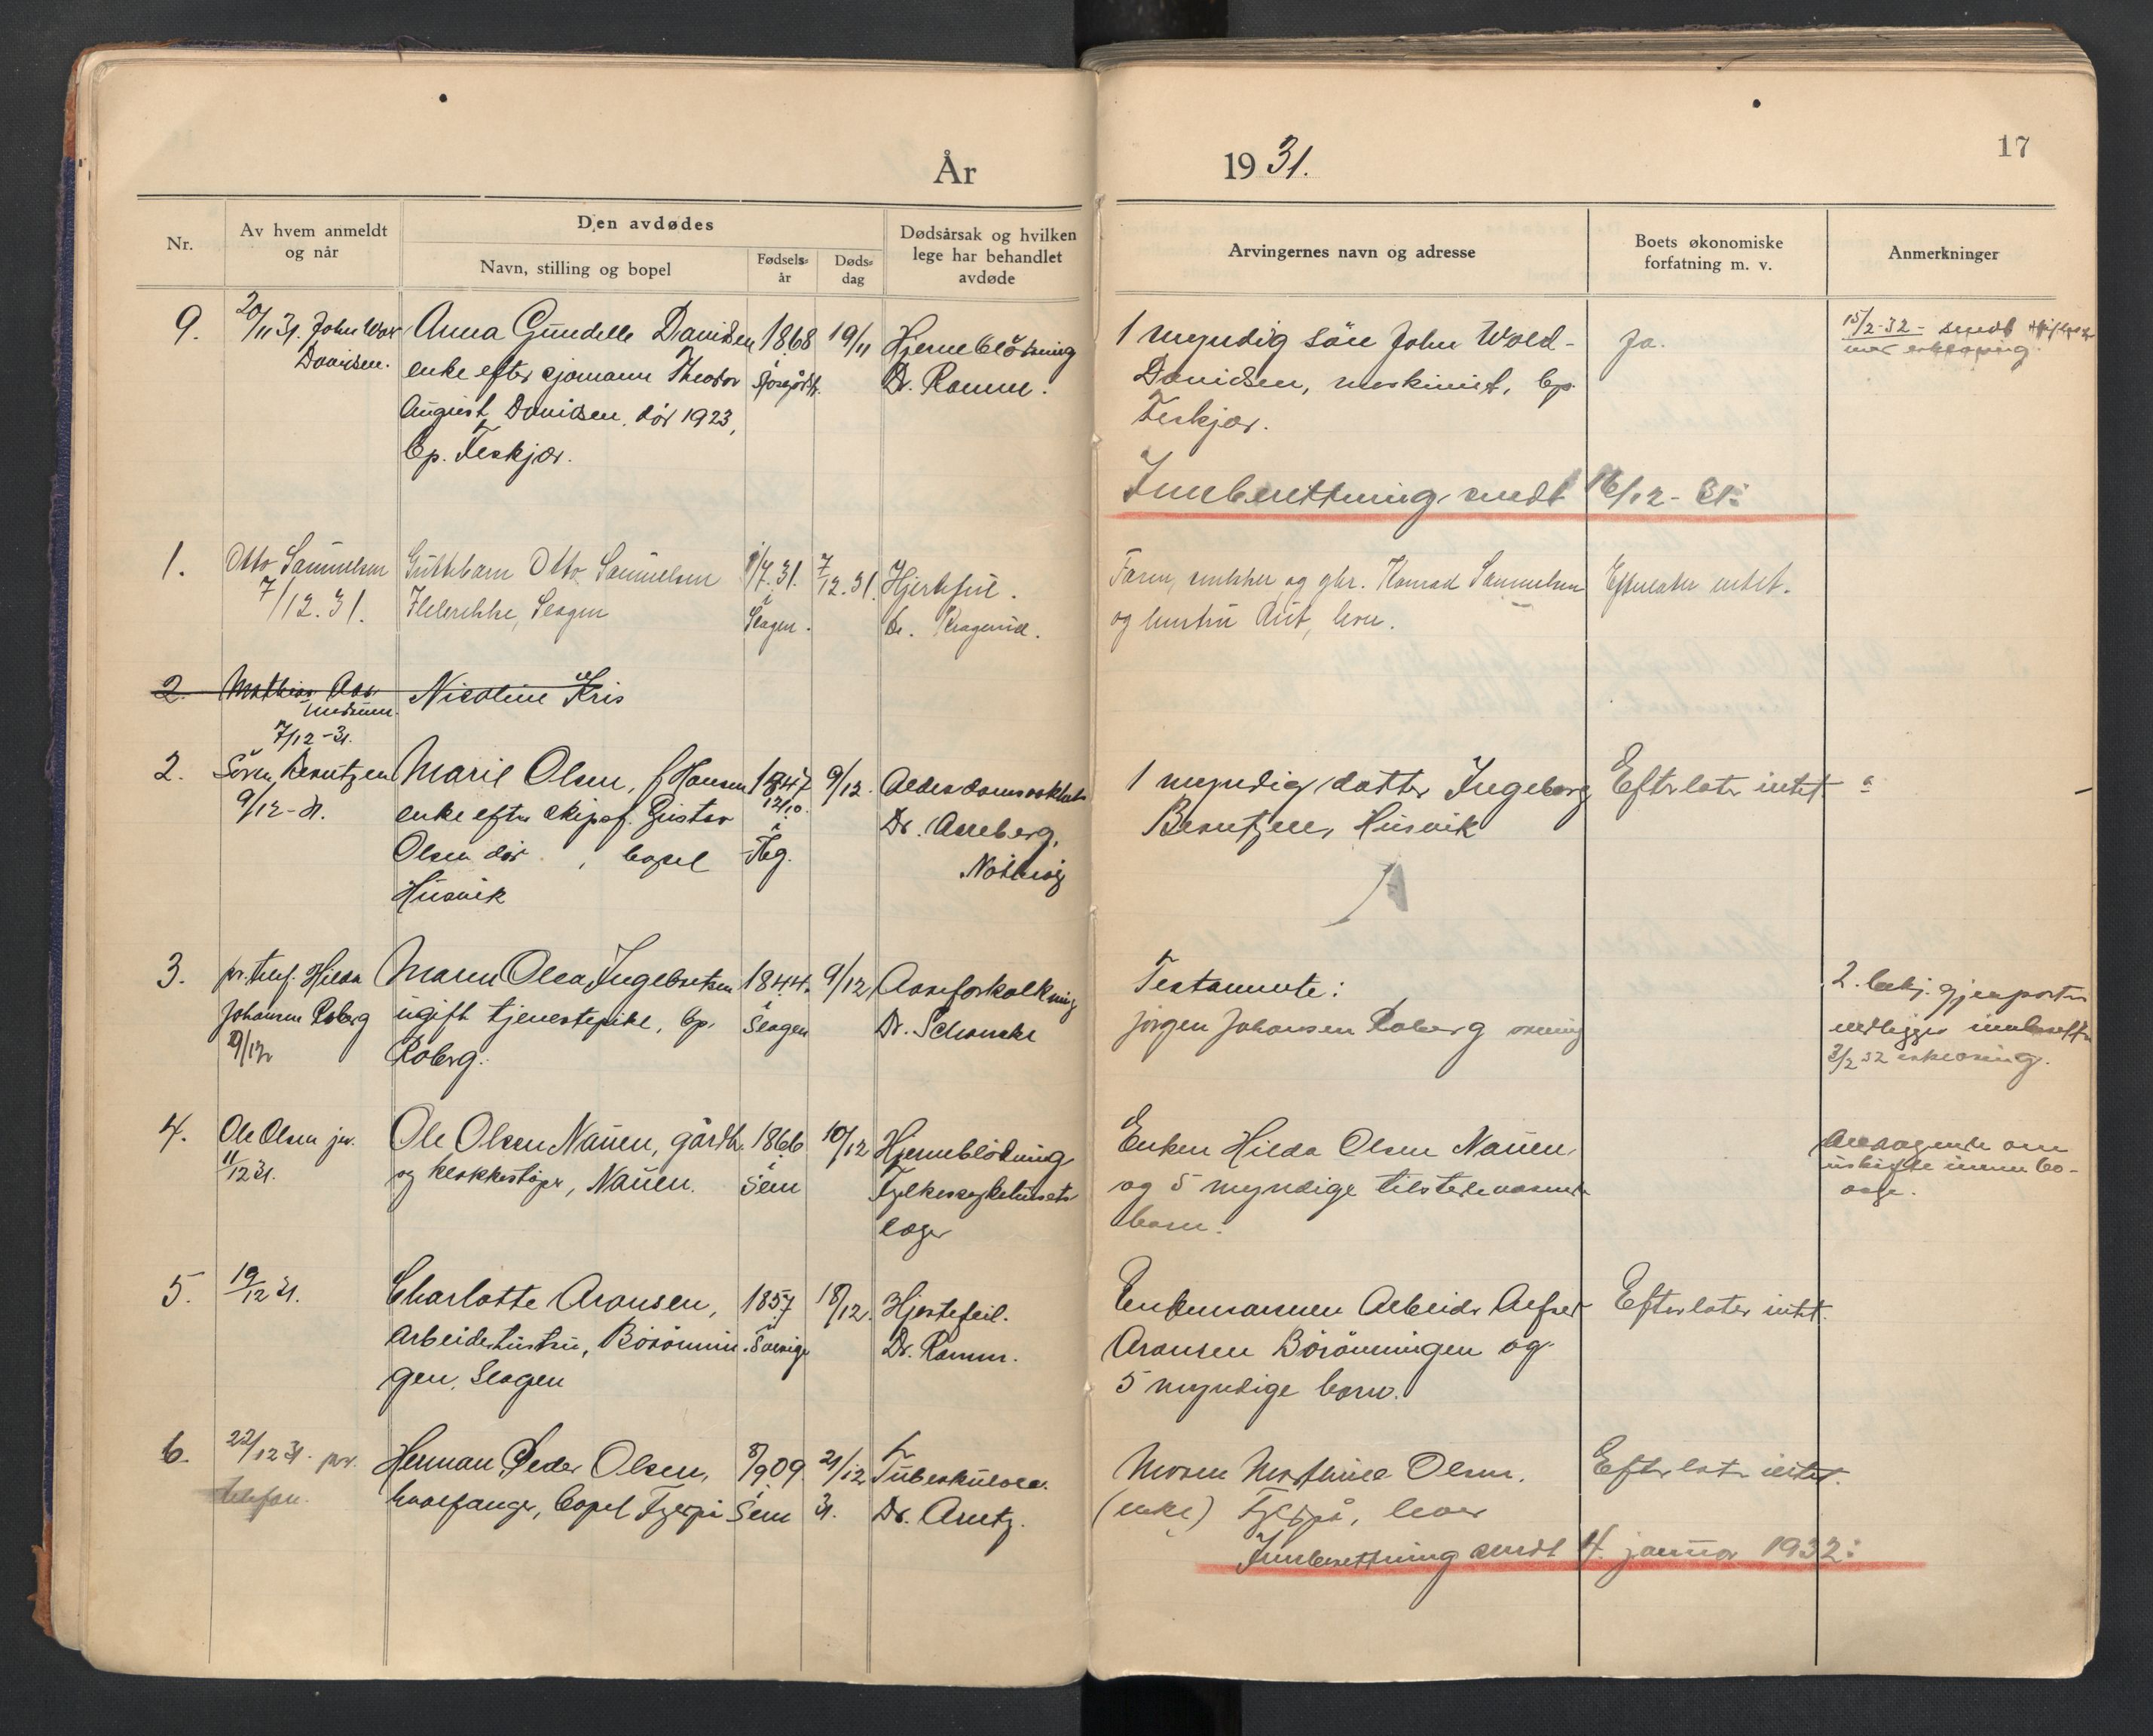 År 1931.
17
Nr.
Av hvem anmeldt og når
Den avdødes
Navn, stilling og bopel
Fødsels-år
Døds-dag
Dødsårsak og hvilken lege har behandlet avdøde
Arvingernes navn og adresse
Boets økonomiske forfatning m. v.
Anmerkninger
9.
20/11 31. John Wold
Davidsen.
Anna Gundelle Davidsen
enke efter sjømann Theodor
August Davidsen, død 1923,
bp. Feskjær.
1868
i
19/11
Hjerneblødning
Dr. Ramm.
1 myndig søn John Wold-
Davidsen, maskinist, bp.
Feskjær.
Ja.
15/2-32 - sendt
Innberettning sendt 16/12-31:
1.
Otto Samuelsen
7/12.31.
Guttebarn Otto Samuelsen
Slagen
/7.31.
i
Slagen.
7/12.31.
Hjertefeil.
Dr.
Farm, og gbr. Konrad Samuelsen
og hustru leve.
Efterlater intet.
2.
Mathias
7/12-31.
Nicoline Kris
2.
Søren Berntzen
9/12-31.
Marie Olsen, f Hansen
enke efter skipsf. Gustav
Olsen død , bopel
Husvik
1847
12/10.
i
Tbg.
9/12.
Alderdomssvakhet
Dr. Arneberg,
Nøtterøy
1 myndig datter Ingeborg
Berntzen, Husvik
Efterlater intet.
3.
pr. telef. Hilda
Johansen Roberg
9/12
Maren Olea Ingebretsen
ugift tjenestepike, bp.
Roberg.
1844.
i
Slagen
9/12
Aareforkalkning
Dr. Schanche
Testamente:
Jørgen Johansen Roberg
2. bekj. gjenparter
vedlegges
3/2 32
4.
Ole Olsen jr.
11/12 31.
Ole Olsen Nauen, gårdbr.
og klokkestøper, Nauen.
1866
i
Sem
10/12
Hjerneblødning
Fylkessykehusets
læger
Enken Hilda Olsen Nauen,
og 5 myndige tilstedeværende
barn.
om
uskiftet
5.
19/12 31.
Charlotte Aronsen,
Arbeiderhustru, Börönnin-
gen, Slagen
1857
i
Sverige
18/12.
Hjertefeil.
Dr. Ramm.
Enkemannen Arbeider Alfred
Aronsen Börönningen og
5 myndige barn.
Efterlater intet.
6.
22/12 31. pr.
telefon.
Herman Peder Olsen,
hvalfanger, bopel
8/9 09
i
Sem
21/12
31.
Tuberkulose.
Dr. Arentz.
Moren Mathilde Olsen,
(enke) lever
Efterlater intet.
Innberettning sendt 4. januar 1932: